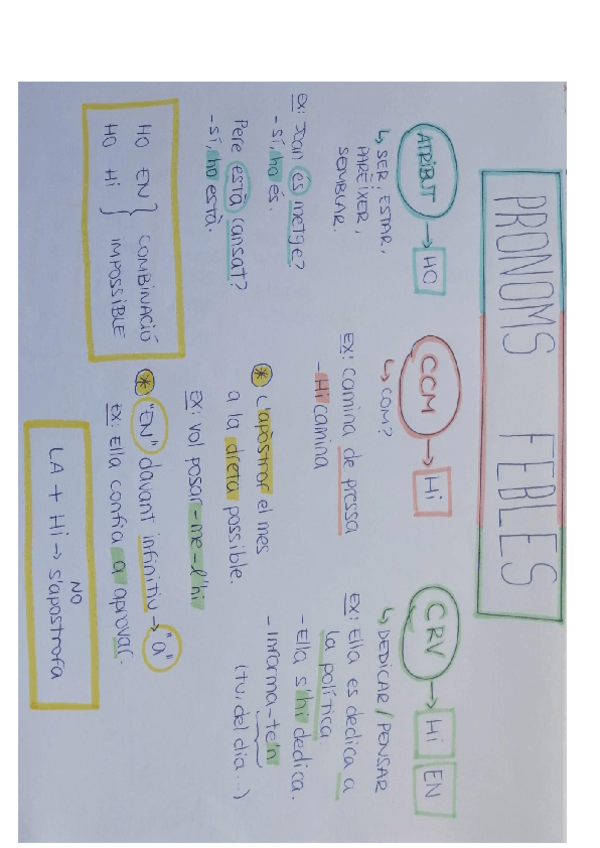 PRONOMS FEBLES
ATRIBUT → HO
↳ SER, ESTAR,
PARÈIXER,
SEMBLAR.
EX: Joan és metge?
- sí, ho és.
Pere està cansat?
- sí, ho està.
HO EN } COMBINACIÓ
HO Hi } IMPOSSIBLE
CCM → Hi
↳ COM?
EX: Camina de pressa
- Hi camina
* L'apòstrof el mes
a la dreta possible.
EX: vol posar-me-l'hi
CRV → Hi EN
↳ DEDICAR / PENSAR
EX: Ella es dedica a
la política.
- Ella s'hi dedica.
- Informa-te'n
(tu, del dia...)
* "EN" davant infinitiu → "a"
EX: Ella confia a aprovar.
LA + Hi → NO s'apostrofa